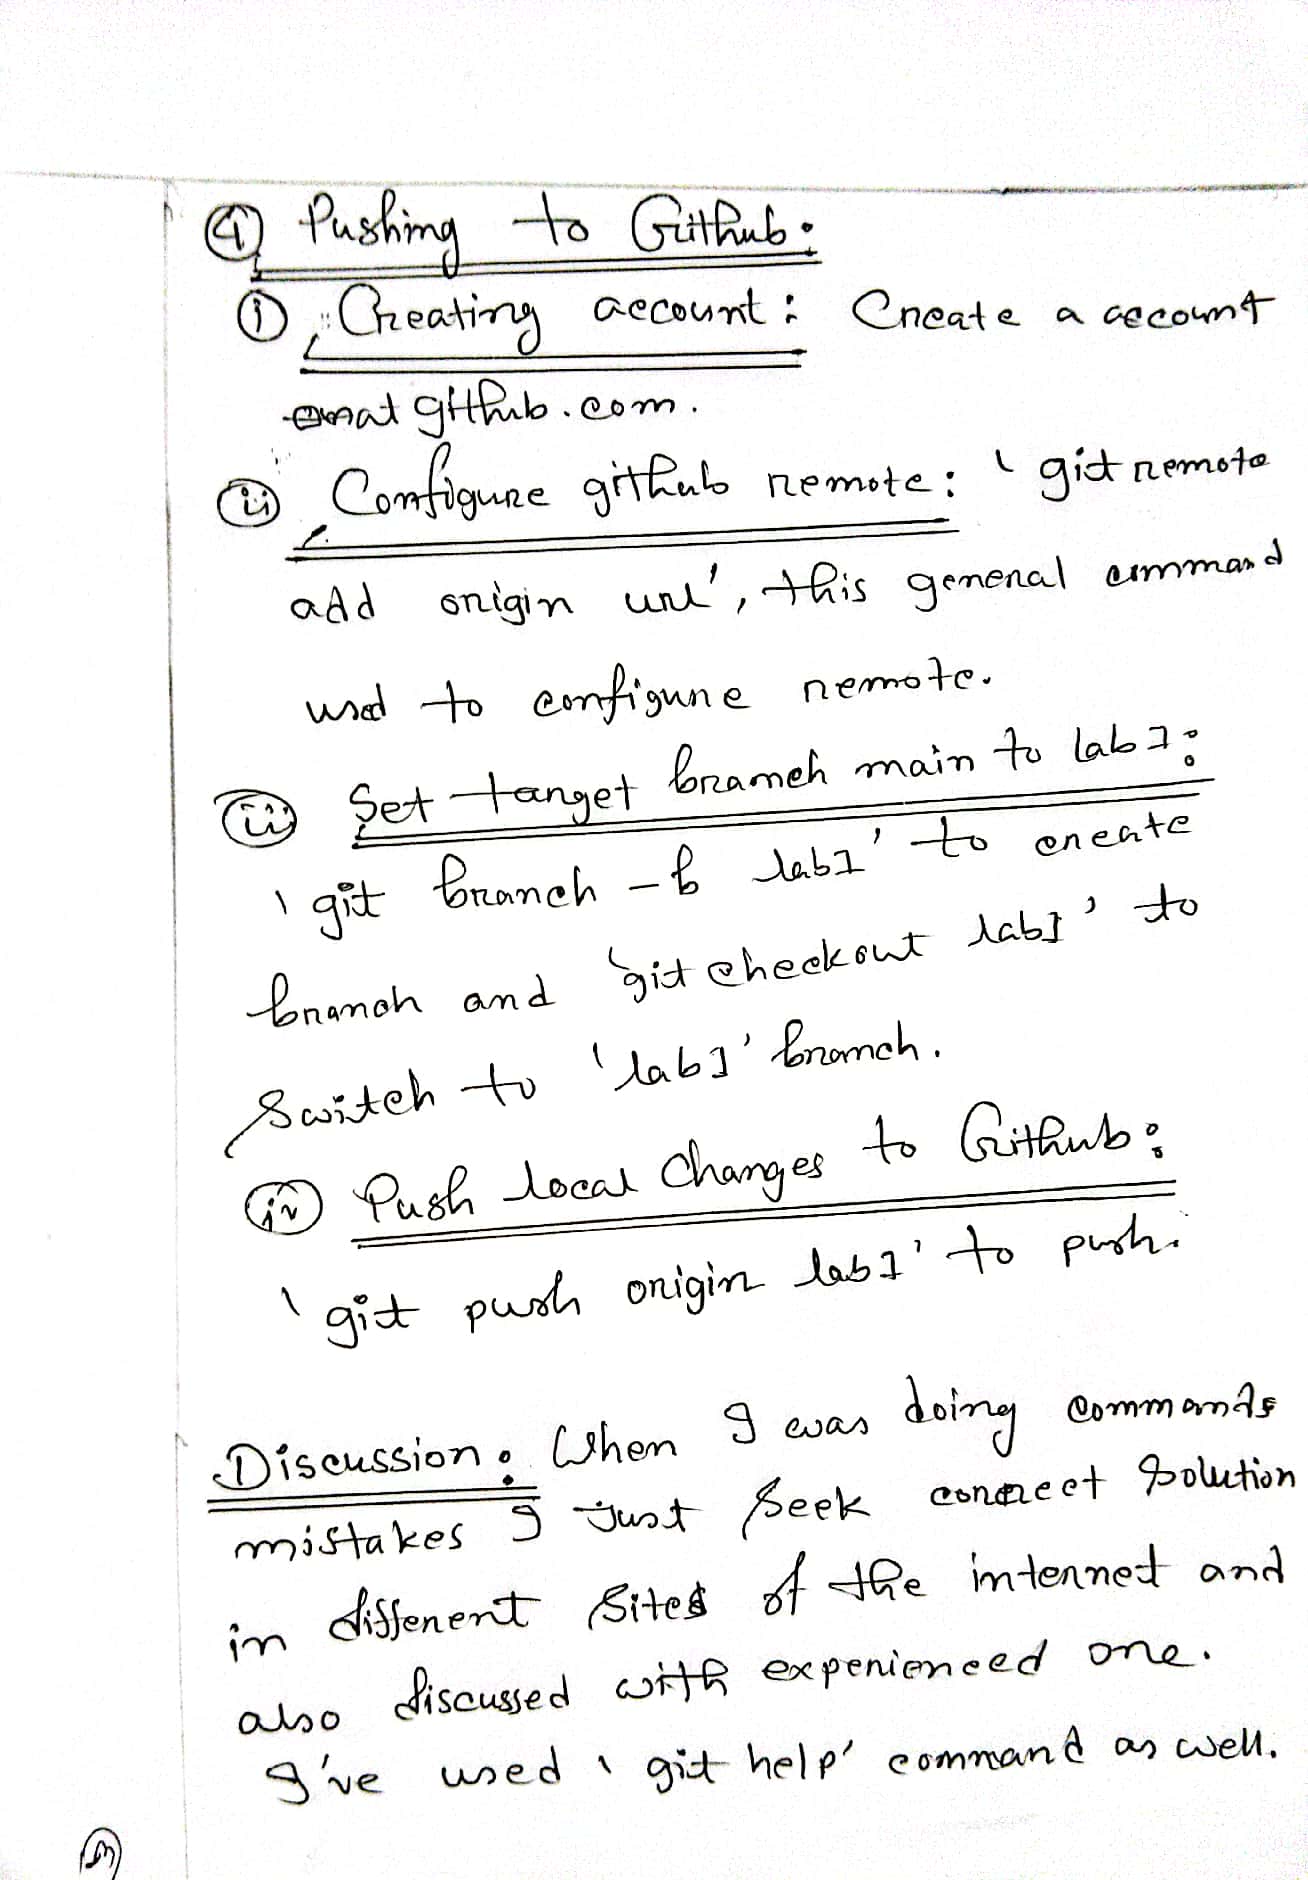 ④ Pushing to Github:
ⓘ Creating account: Create a account
at github.com.
ⓘⓘ Configure github remote: 'git remote
add origin url', this general command
used to configure remote.
ⓘⓘⓘ Set target branch main to lab1:
'git branch -b lab1' to create
branch and 'git checkout lab1' to
switch to 'lab1' branch.
ⓘⓥ Push local changes to Github:
'git push origin lab1' to push.
Discussion: When I was doing commands
mistakes I just seek correct solution
in different sites of the internet and
also discussed with experienced one.
I've used 'git help' command as well.